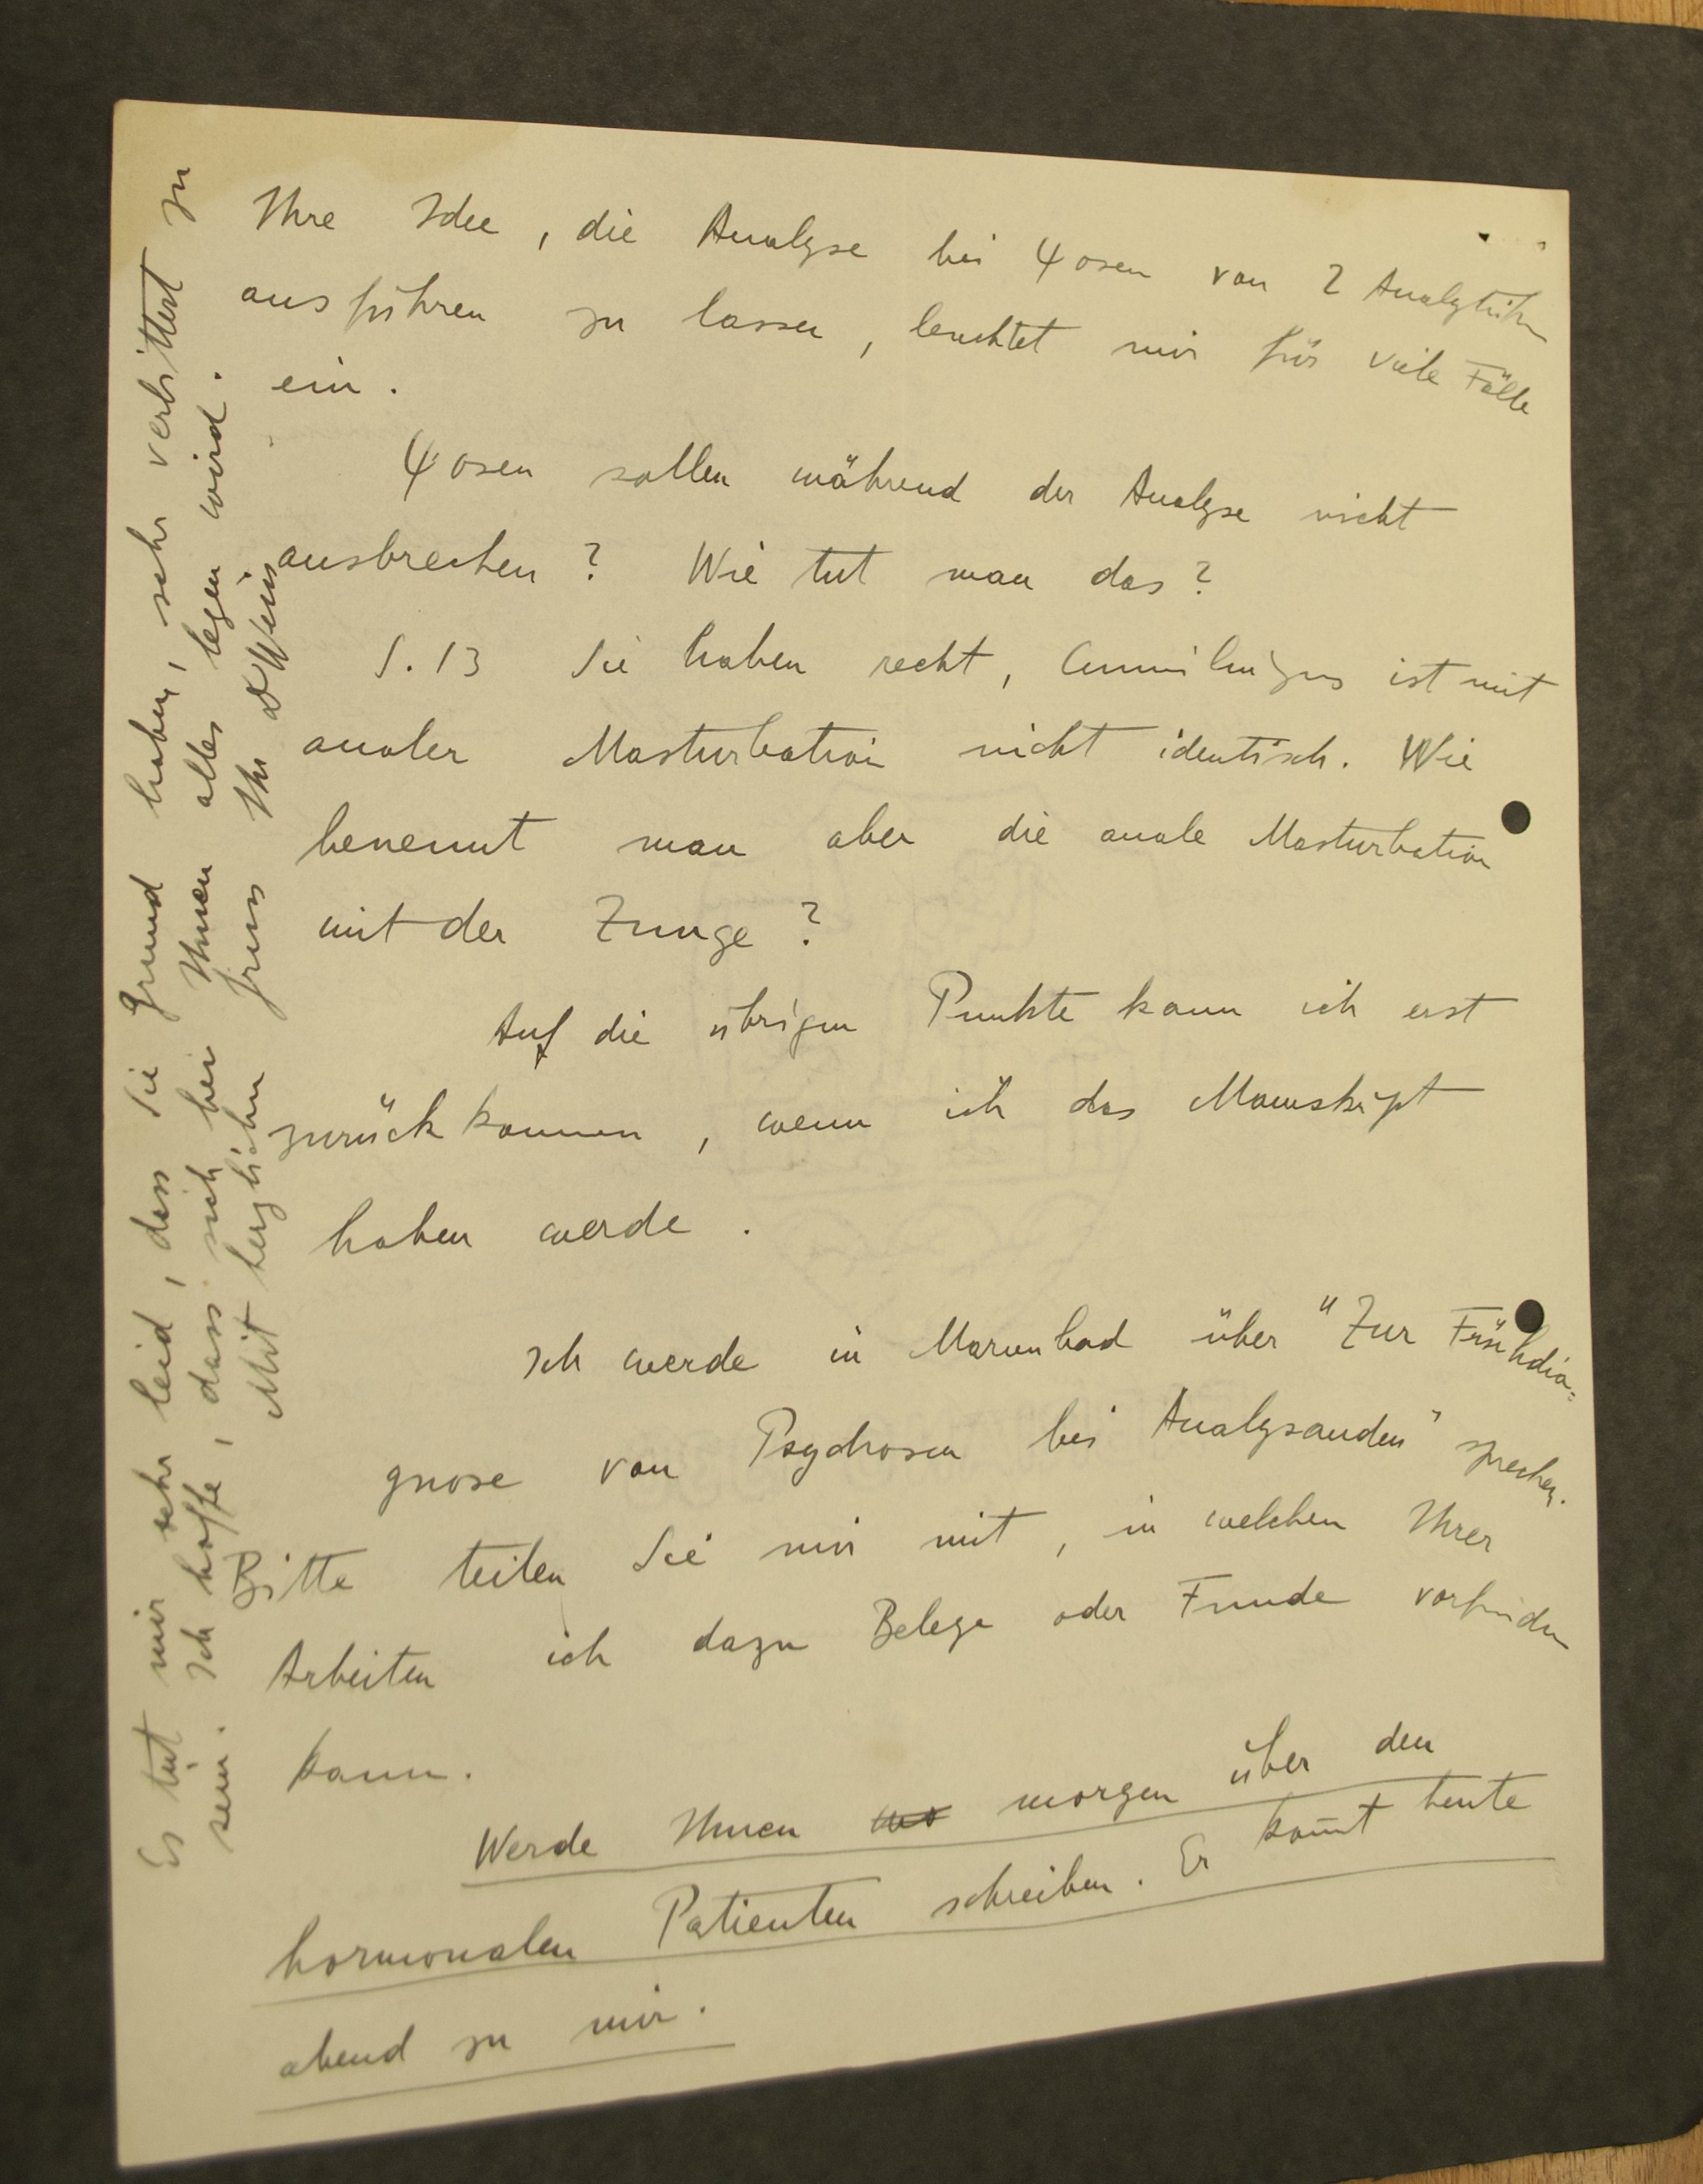 Ihre Idee, die Analyse bei ψosen von 2 Analytikern
ausführen zu lassen, leuchtet mir für viele Fälle
ein.
ψosen sollen während der Analyse nicht
ausbrechen? Wie tut man das?
S. 13 Sie haben recht, Cunnilingus ist mit
analer Masturbation nicht identisch. Wie
benennt man aber die anale Masturbation
mit der Zunge?
Auf die übrigen Punkte kann ich erst
zurückkommen, wenn ich das Manuskript
haben werde.
Ich werde in Marienbad über "Zur Frühdia=
gnose von Psychosen bei Analysanden" sprechen.
Bitte teilen Sie mir mit, in welchen Ihrer
Arbeiten ich dazu Belege oder Funde vorfinden
kann.
Werde Ihnen morgen über den
hormonalen Patienten schreiben. Er kom̄t heute
abend zu mir.
Es tut mir sehr leid, dass Sie Grund haben, sehr verbittert zu
sein. Ich hoffe, dass sich bei Ihnen alles legen wird.
Mit herzlichem Gruss Ihr